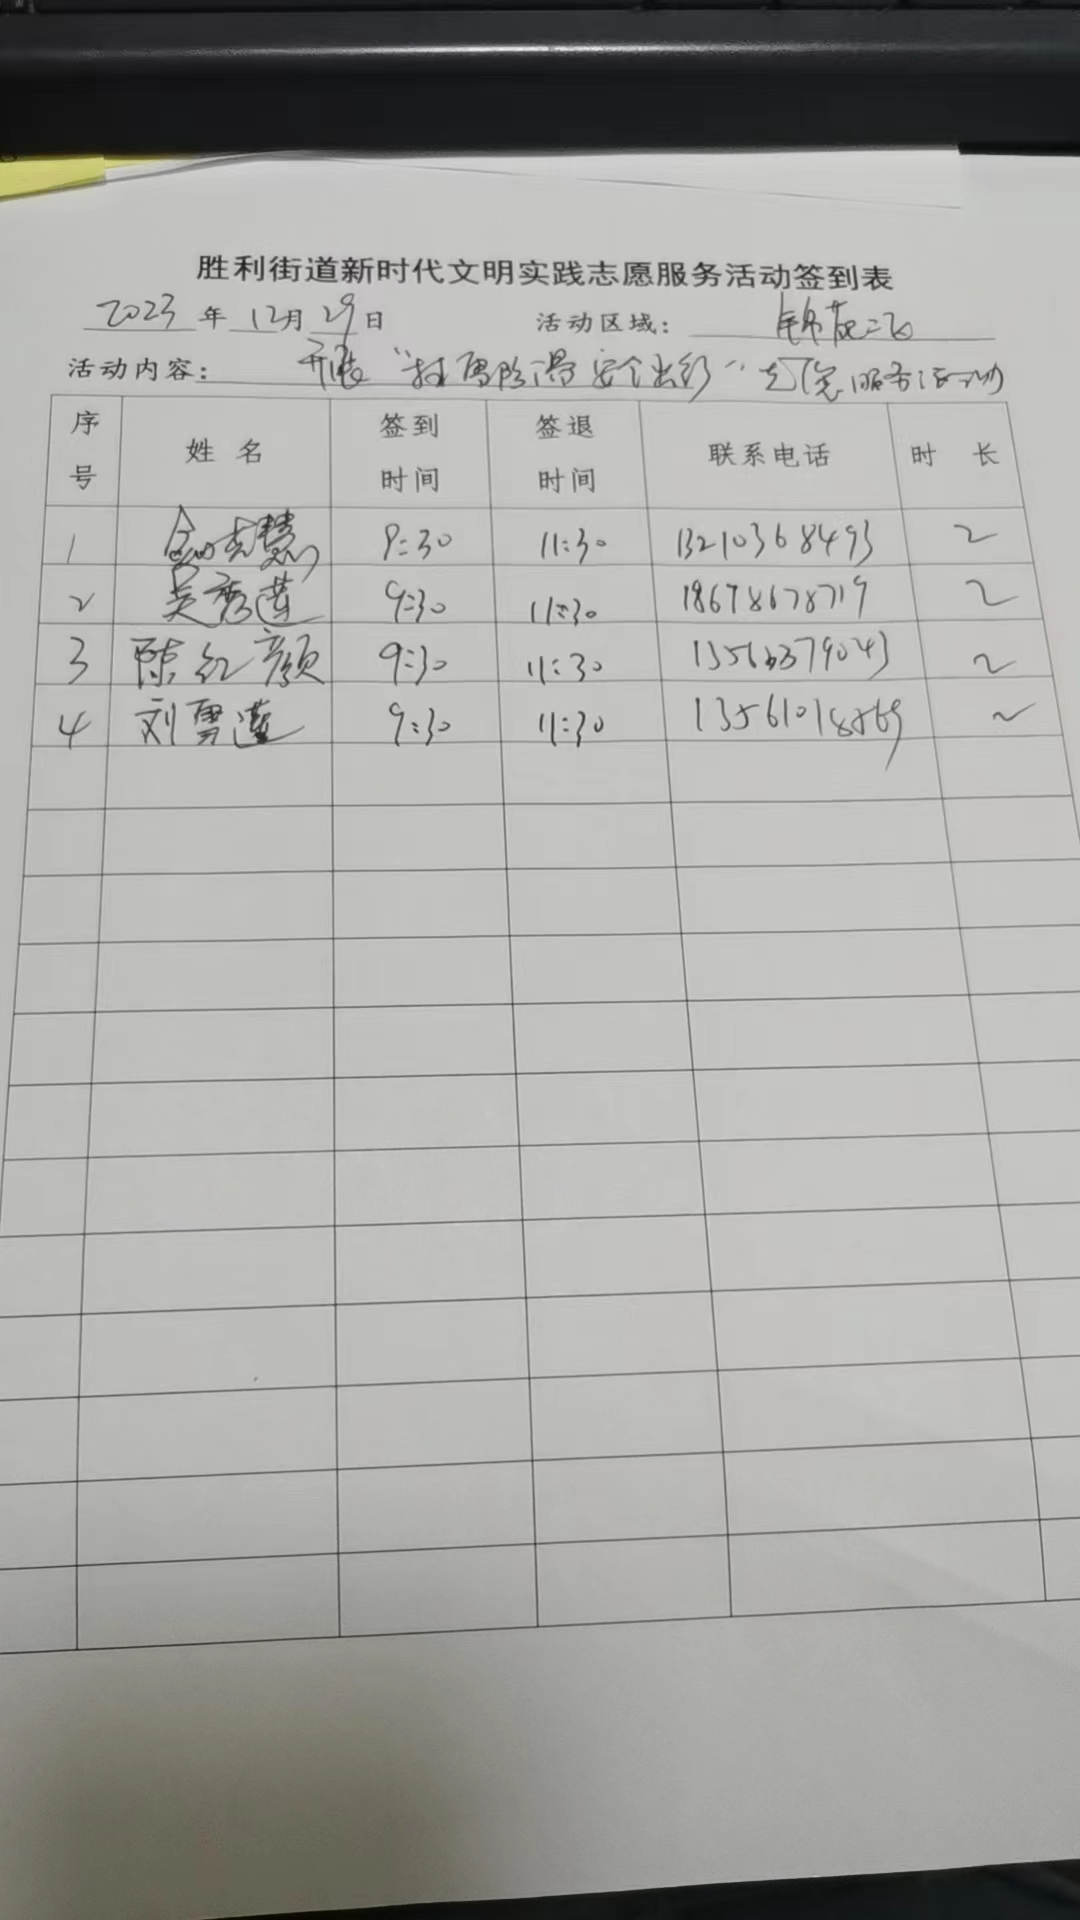 胜利街道新时代文明实践志愿服务活动签到表
2023年12月29日 活动区域：锦苑二区
活动内容：开展“扫雪防滑 安全出行”志愿服务活动
序号 姓名 签到时间 签退时间 联系电话 时长
1 9:30 11:30 13210368493 2
2 吴秀莲 9:30 11:30 18678678719 2
3 陈红颜 9:30 11:30 2
4 刘雪莲 9:30 11:30 13561018569 2